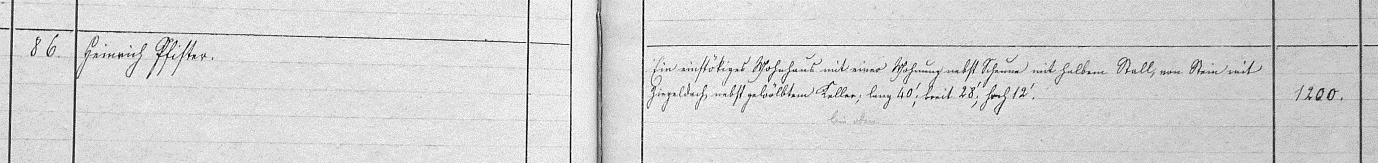 86. Heinrich Pfister.
Ein einstökiges Wohnhaus mit einer Wohnung nebst Scheune mit halbem Stall, von Stein mit
Ziegeldach, nebst gewölbtem Keller; lang 40', breit 28', hoch 12'. 1200.